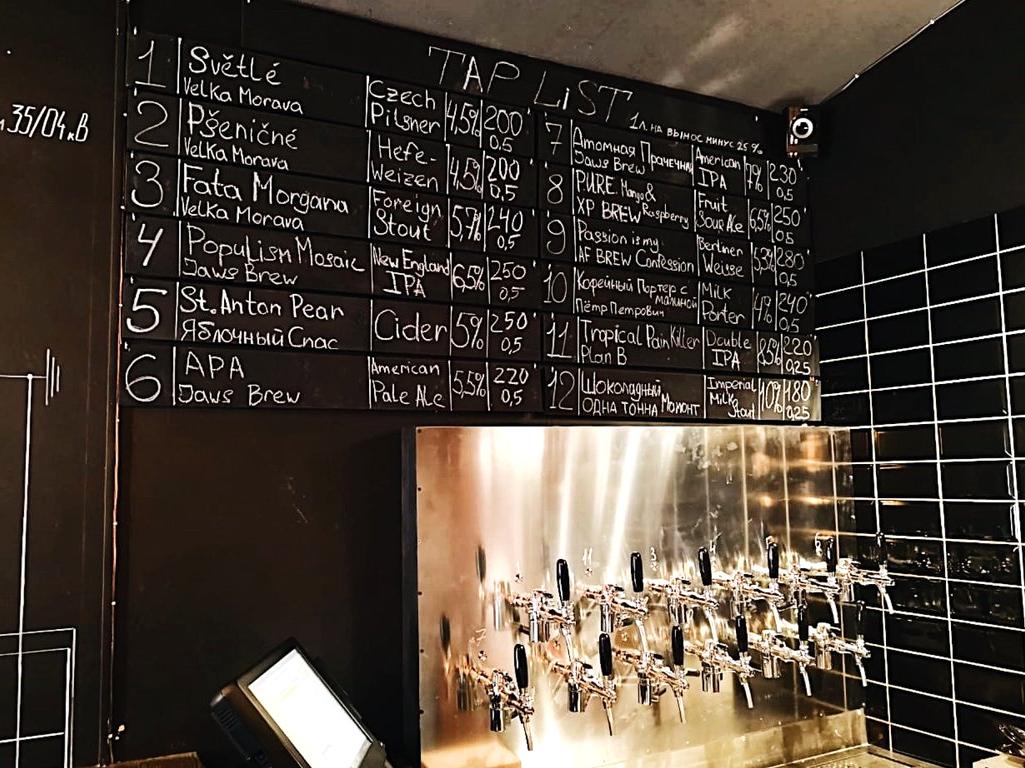 35/04кВ
TAP LiST
1л. на вынос минус 25%
1 Světlé Czech 4,5% 200
Velka Morava Pilsner 0.5
2 Pšeničné Hefe- 4,5% 200
Velka Morava Weizen 0,5
3 Fata Morgana Foreign 5,7% 240
Velka Morava Stout 0,5
4 Populism Mosaic New England 6,5% 250
Jaws Brew IPA 0,5
5 St. Anton Pear Cider 5% 250
Яблочный Спас 0,5
6 APA American 5,5% 220
Jaws Brew Pale Ale 0,5
7 Атомная Прачечная American 7% 230
Jaws Brew IPA 0,5
8 PURE Mango & Fruit 6,5% 250
XP BREW Raspberry Sour Ale 0,5
9 Passion is my Berliner 280
AF BREW Confession Weisse 0,5
10 Кофейный Портер с малиной Milk 4% 240
Пётр Петрович Porter 0,5
11 Tropical Pain Killer Double 8,5% 220
Plan B IPA 0,25
12 Шоколадный Imperial 10% 180
ОДНА ТОННА Момонт Milk Stout 0,25
11 3